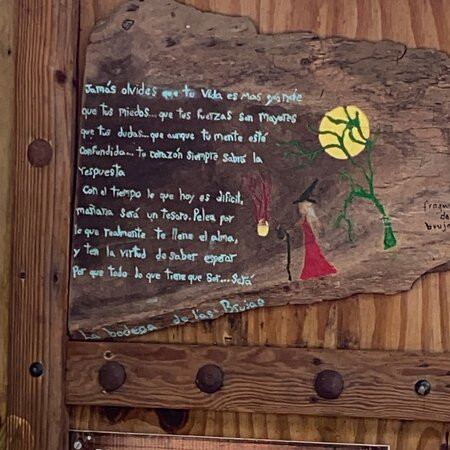 Jamás olvides que tu vida es mas grande
que tus miedos... que tus fuerzas son mayores
que tus dudas... que aunque tu mente esté
confundida... tu corazón siempre sabrá la
respuesta
Con el tiempo lo que hoy es difícil,
mañana será un tesoro. Pelea por
lo que realmente te llene el alma,
y ten la virtud de saber esperar
Por que todo lo que tiene que ser... Será
La bodega de las Brujas
de